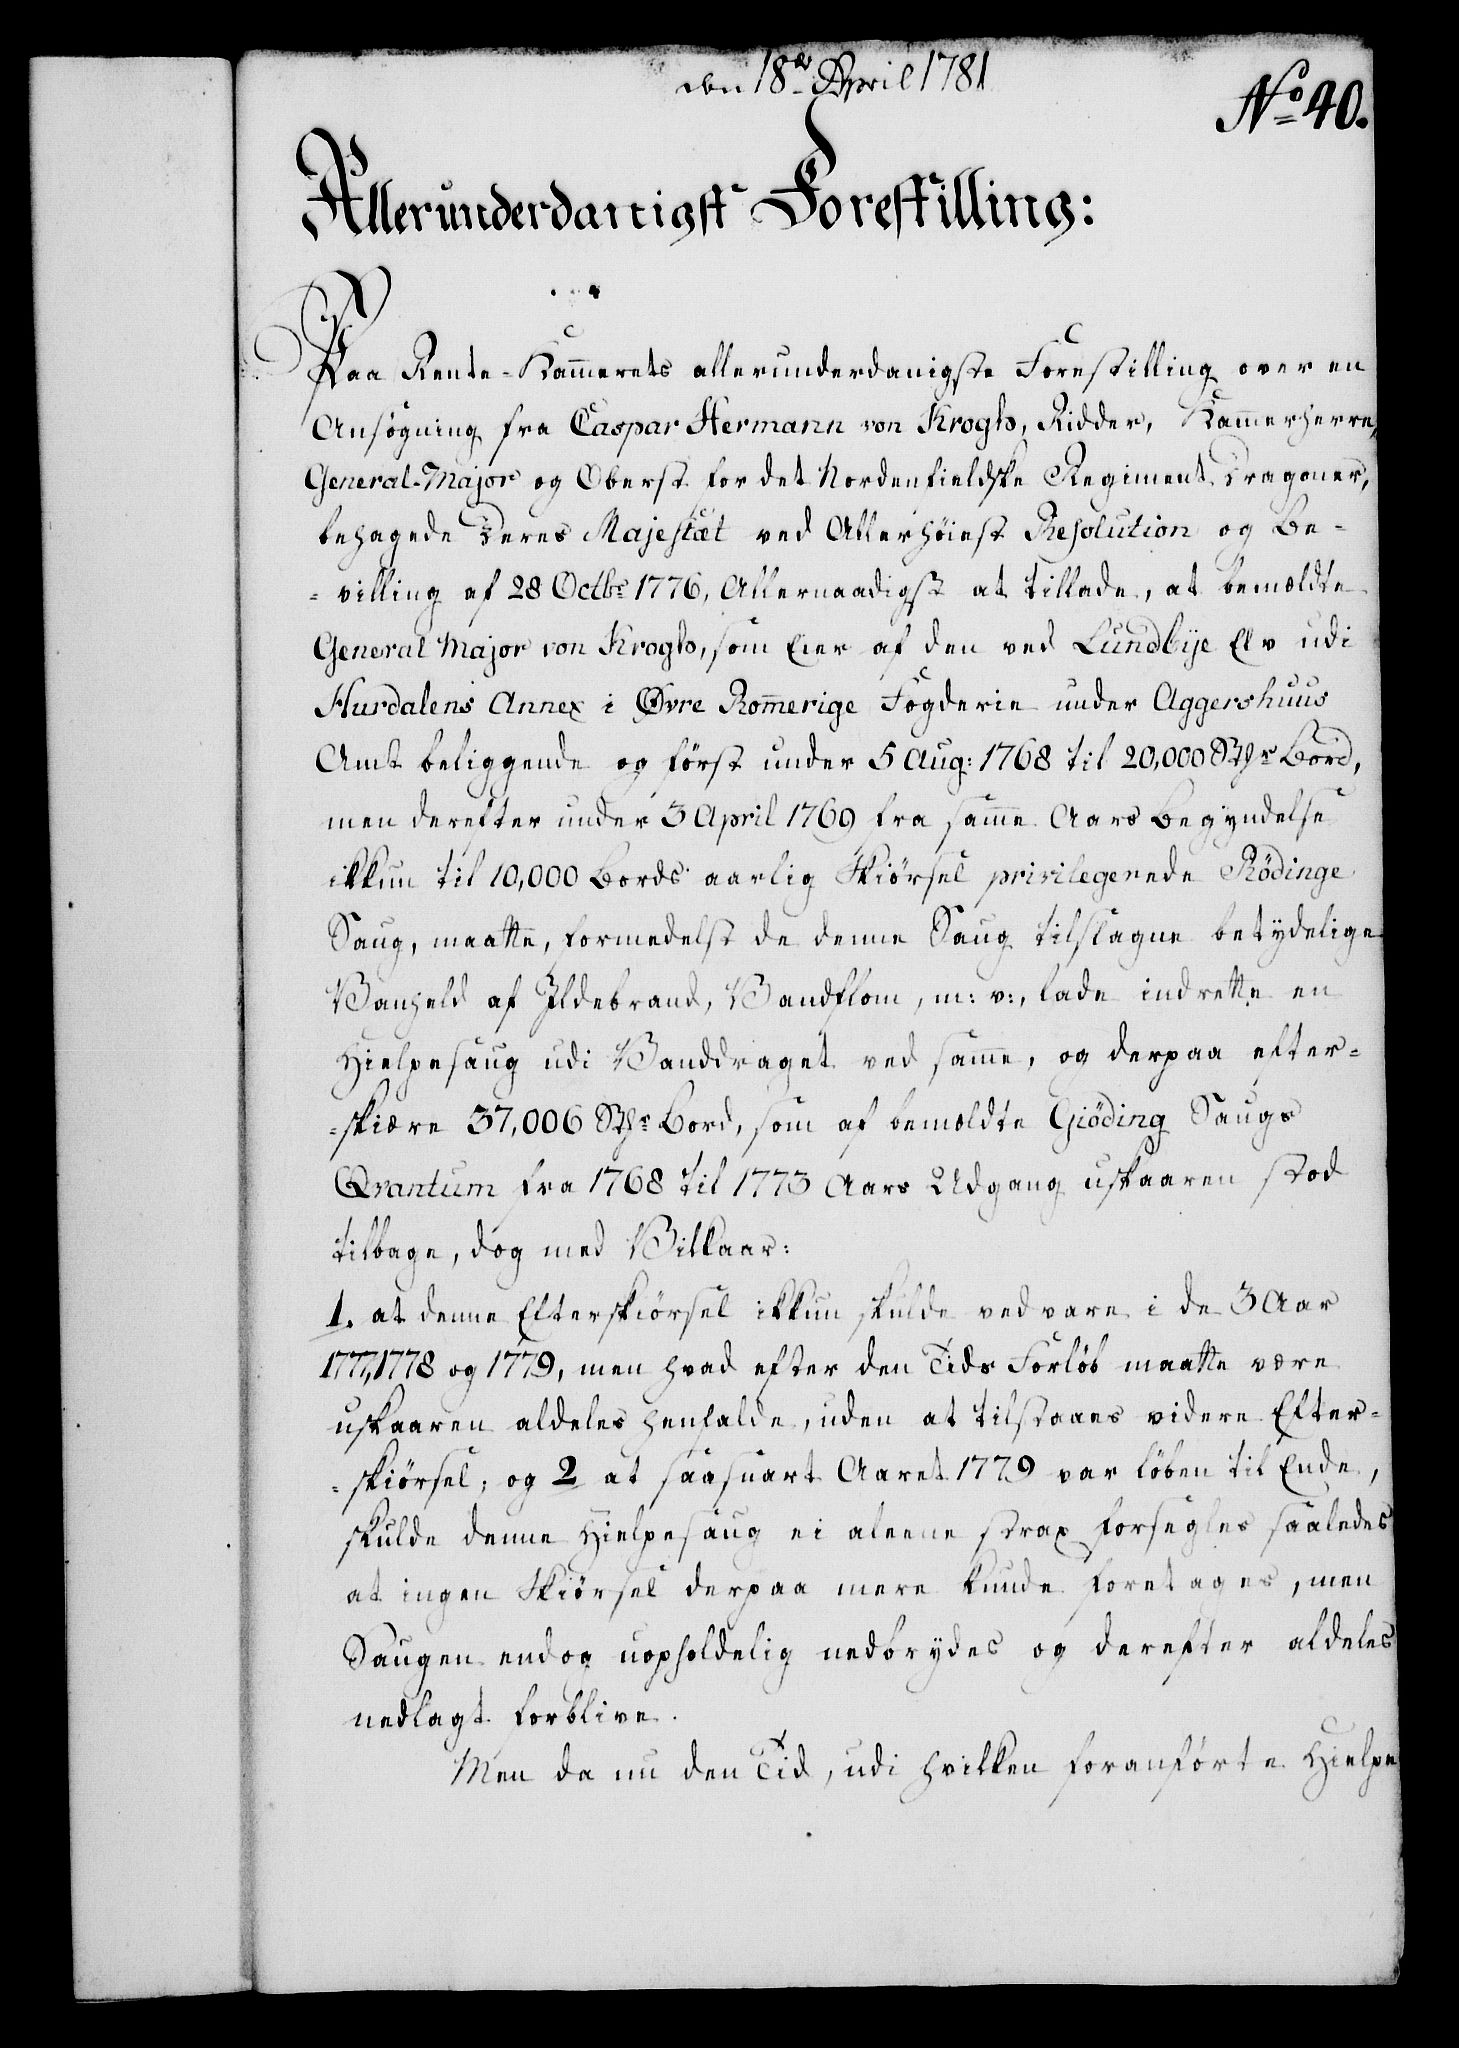 den 18de April 1781
No 40.
Allerunderdanigst Forestilling:
Paa Rente-Kam̄erets allerunderdanigste Forestilling over en
Ansøgning fra Caspar Hermann von Krogh, Ridder, Kam̄erherre,
General-Major og Oberst for det Nordenfieldske Regiment Dragoner,
behagede Deres Majestæt ved Allerhöiest Resolution og Be-
-villing af 28 Octbr 1776, Allernaadigst at tillade, at bemældte
General Major von Krogh, som Eier af den ved Lundbÿe Elv udi
Hurdalens Annex i Øvre Rom̄erige Fogderie under Aggershuus
Amt beliggende og först under 5 Aug: 1768 til 20,000 Stkr Bord,
men derefter under 3 April 1769 fra sam̄e Aars Begyndelse
ikkun til 10,000 Bords aarlig Skiörsel privilegerede Rödinge
Saug, maatte, formedelst de denne Saug tilslagne betÿdelige
Vanheld af Ildebrand, Vandflom, m: v:, lade indrette en
Hielpesaug udi Vanddraget ved sam̄e, og derpaa efter-
-skiære 37,006 Stkr Bord, som af bemældte Giöding Saugs
Qvantum fra 1768 til 1773 Aars Udgang uskaaren stod
tilbage, dog med Vilkaar:
1. at denne Efterskiörsel ikkun skulde vedvare i de 3 Aar
1777, 1778 og 1779, men hvad efter den Tids Forlöb maatte være
uskaaren aldeles henfalde, uden at tilstaaes videre Efter-
-skiörsel; og 2 at saasnart Aaret 1779 var löben til Ende,
skulde denne Hielpesaug ei aleene strax forsegles saaledes
at ingen Skiörsel derpaa mere kunde foretages, men
Saugen endog uopholdelig nedbrydes og derefter aldeles
nedlagt forblive.
Men da nu den Tid, udi hvilken foranförte Hielpe